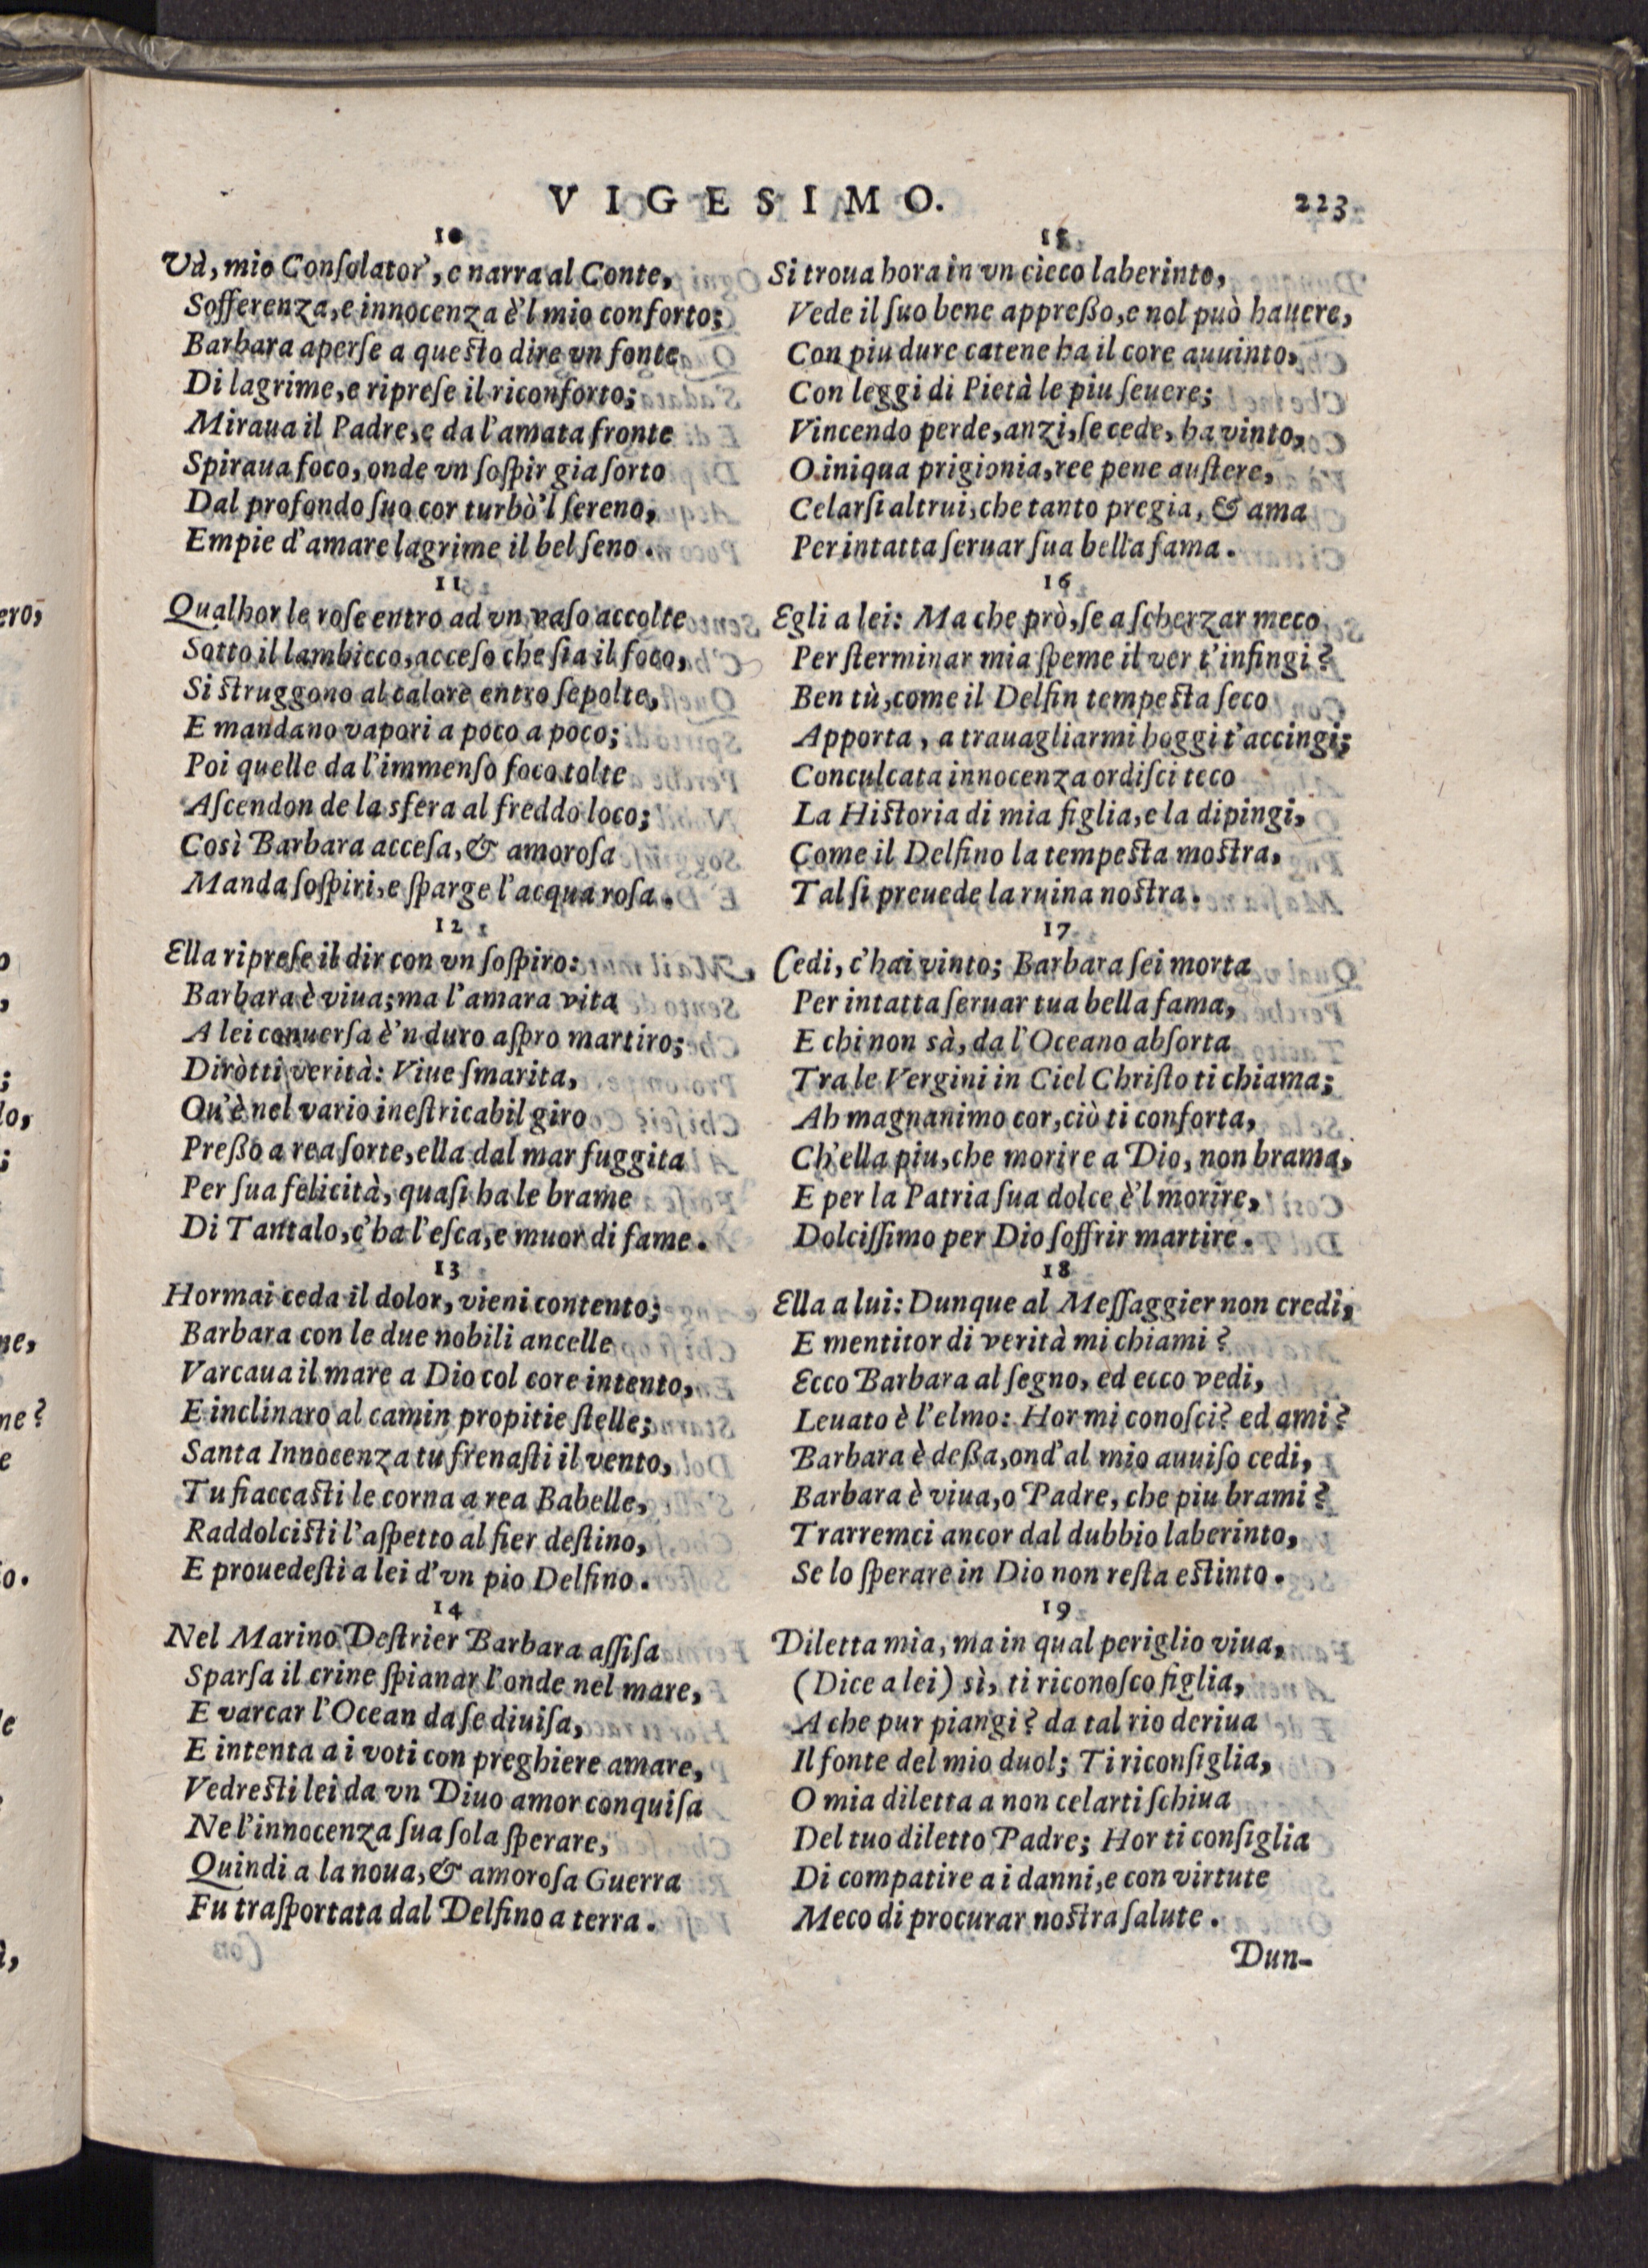 VIGESIMO. 223
10
Và, mio Conſolator, e narra al Conte,
Sofferenza, e innocenza è'l mio conforto;
Barbara aperſe a queſto dire vn fonte
Di lagrime, e ripreſe il riconforto;
Miraua il Padre, e da l'amata fronte
Spiraua foco, onde vn ſoſpir gia ſorto
Dal profondo ſuo cor turbò'l ſereno,
Empie d'amare lagrime il bel ſeno.
11
Qualhor le roſe entro ad vn vaſo accolte
Sotto il lambicco, acceſo che ſia il foco,
Si ſtruggono al calore entro ſepolte,
E mandano vapori a poco a poco;
Poi quelle da l'immenſo foco tolte
Aſcendon de la sfera al freddo loco;
Così Barbara acceſa, & amoroſa
Manda ſoſpiri, e ſparge l'acqua roſa.
12
Ella ripreſe il dir con vn ſoſpiro:
Barbara è viua; ma l'amara vita
A lei conuerſa è'n duro aſpro martiro;
Diròtti verità: Viue ſmarita,
Ou'è nel vario ineſtricabil giro
Preßo a rea ſorte, ella dal mar fuggita
Per ſua felicità, quaſi ha le brame
Di Tantalo, c'ha l'eſca, e muor di fame.
13
Hormai ceda il dolor, vieni contento;
Barbara con le due nobili ancelle
Varcaua il mare a Dio col core intento,
E inclinaro al camin propitie ſtelle;
Santa Innocenza tu frenaſti il vento,
Tu fiaccaſti le corna a rea Babelle,
Raddolciſti l'aſpetto al fier deſtino,
E prouedeſti a lei d'vn pio Delfino.
14
Nel Marino Deſtrier Barbara aſſiſa
Sparſa il crine ſpianar l'onde nel mare,
E varcar l'Ocean da ſe diuiſa,
E intenta a i voti con preghiere amare,
Vedreſti lei da vn Diuo amor conquiſa
Ne l'innocenza ſua ſola ſperare,
Quindi a la noua, & amoroſa Guerra
Fu traſportata dal Delfino a terra.
15
Si troua hora in vn cieco laberinto,
Vede il ſuo bene appreßo, e nol può hauere,
Con piu dure catene ha il core auuinto,
Con leggi di Pietà le piu ſeuere;
Vincendo perde, anzi, ſe cede, ha vinto,
O iniqua prigionia, ree pene auſtere,
Celarſi altrui, che tanto pregia, & ama
Per intatta ſeruar ſua bella fama.
16
Egli a lei: Ma che prò, ſe a ſcherzar meco
Per ſterminar mia ſpeme il ver t'infingi?
Ben tù, come il Delfin tempeſta ſeco
Apporta, a trauagliarmi hoggi t'accingi;
Conculcata innocenza ordiſci teco
La Hiſtoria di mia figlia, e la dipingi,
Come il Delfino la tempeſta moſtra,
Tal ſi preuede la ruina noſtra.
17
Cedi, c'hai vinto; Barbara ſei morta
Per intatta ſeruar tua bella fama,
E chi non sà, da l'Oceano abſorta
Tra le Vergini in Ciel Chriſto ti chiama;
Ah magnanimo cor, ciò ti conforta,
Ch'ella piu, che morire a Dio, non brama,
E per la Patria ſua dolce è'l morire,
Dolciſſimo per Dio ſoffrir martire.
18
Ella a lui: Dunque al Meſſaggier non credi,
E mentitor di verità mi chiami?
Ecco Barbara al ſegno, ed ecco vedi,
Leuato è l'elmo: Hor mi conoſci? ed ami?
Barbara è deßa, ond'al mio auuiſo cedi,
Barbara è viua, o Padre, che piu brami?
Trarremci ancor dal dubbio laberinto,
Se lo ſperare in Dio non reſta eſtinto.
19
Diletta mia, ma in qual periglio viua,
(Dice a lei) sì, ti riconoſco figlia,
A che pur piangi? da tal rio deriua
Il fonte del mio duol; Ti riconſiglia,
O mia diletta a non celarti ſchiua
Del tuo diletto Padre; Hor ti conſiglia
Di compatire a i danni, e con virtute
Meco di procurar noſtra ſalute.
Dun-